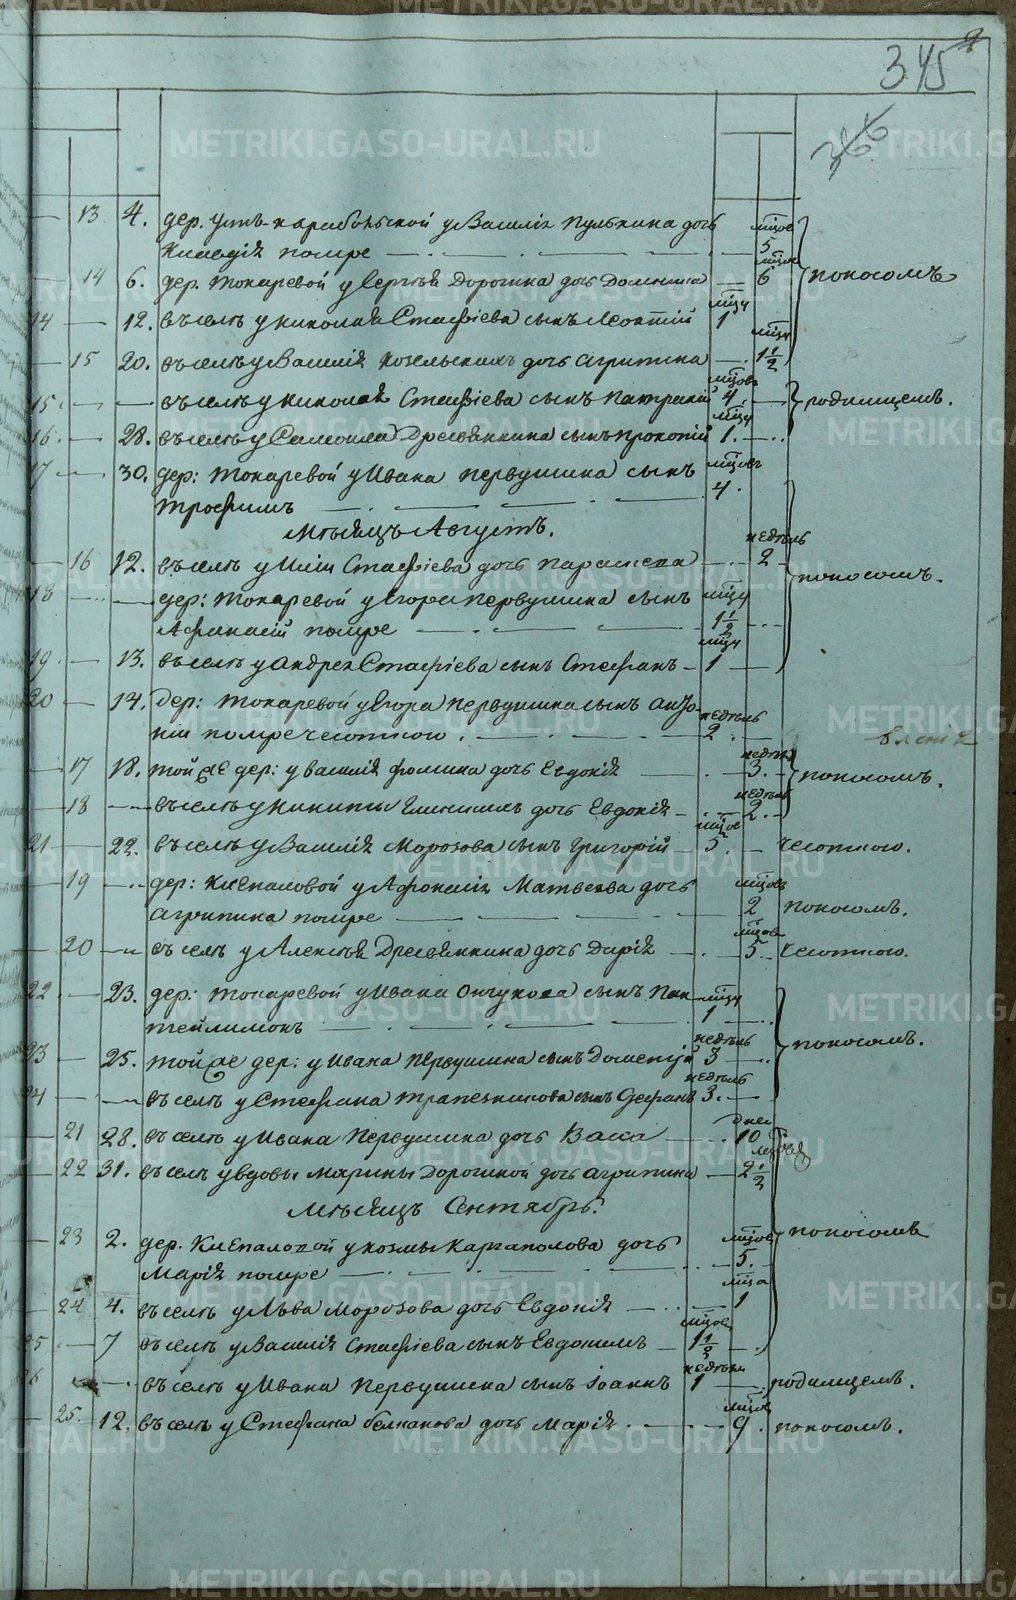 345
366
13 4. дер. Усть-карабольской у Василія Пульхина дочь мцов
Клавдія помре 5
14 6. дер. Токаревой у Сергѣя Дорогина дочь Домника мцов 6 поносомъ
14 12. въ селѣ у Николая Стафіева сынъ Леонтій мцу 1
15 20. въ селѣ у Василія дочь Агрипина мцу 1 1/2
15. въ селѣ у Николая Стафіева сынъ Патракій мцовъ 4 родимцемъ.
16. 28. въ селѣ у Самоила Древнянкина сынъ Прокопій мцу 1.
17 30. дер: Токаревой у Ивана Первушина сынъ мцовъ
Трофимъ 4.
Мѣсяцъ Августъ.
16 12. въ селѣ у Иліи Стафіева дочь Параскева недѣль 2
18 дер: Токаревой у Егора Первушина сынъ мцу поносомъ.
Афанасій помре 1 1/2
19. 13. въ селѣ у Андрея Стафіева сынъ Стефанъ мцу 1
20 14. дер: Токаревой у Егора Первушина сынъ
помре чесоткою. недѣль 2
17 18. той же дер: у Василія Фомина дочь Евдокія недѣль 3. поносомъ.
18 въ селѣ у Никиты дочь Евдокія недѣль 2.
21 22. въ селѣ у Василія Морозова сынъ Григорій мцов 5. чесоткою.
19 дер: Клепаловой у Афонасія Матвеева дочь мцовъ
Агрипина помре 2 поносомъ.
20 въ селѣ у Алексѣя Древнянкина дочь Дарія мцовъ 5. чесоткою.
22. 23. дер: Токаревой у Ивана сынъ Пан- мцу
телимонъ 1
23 25. той же дер: у Ивана Первушина сынъ Дометій недѣль 3 поносомъ.
24 въ селѣ у Стефана Трапезникова сынъ Стефанъ недѣль 3.
21 28. въ селѣ у Ивана Первушина дочь Васса дней 10
22 31. въ селѣ у вдовы Марины Дорогиной дочь Агрипина 2 1/2
Мѣсяцъ Сентябрь.
23 2. дер. Клепаловой у Козмы Каргаполова дочь мцов поносомъ
Марія помре 5.
24 4. въ селѣ у Льва Морозова дочь Евдокія мца 1
25. 7 въ селѣ у Василія Стафіева сынъ Евдокимъ мцов 1 1/2
26 въ селѣ у Ивана Первушина сынъ Іоаннъ недѣли 1 родимцемъ.
25. 12. въ селѣ у Стефана Белканова дочь Марія мцов 9. поносомъ.
METRIKI.GASO-URAL.RU